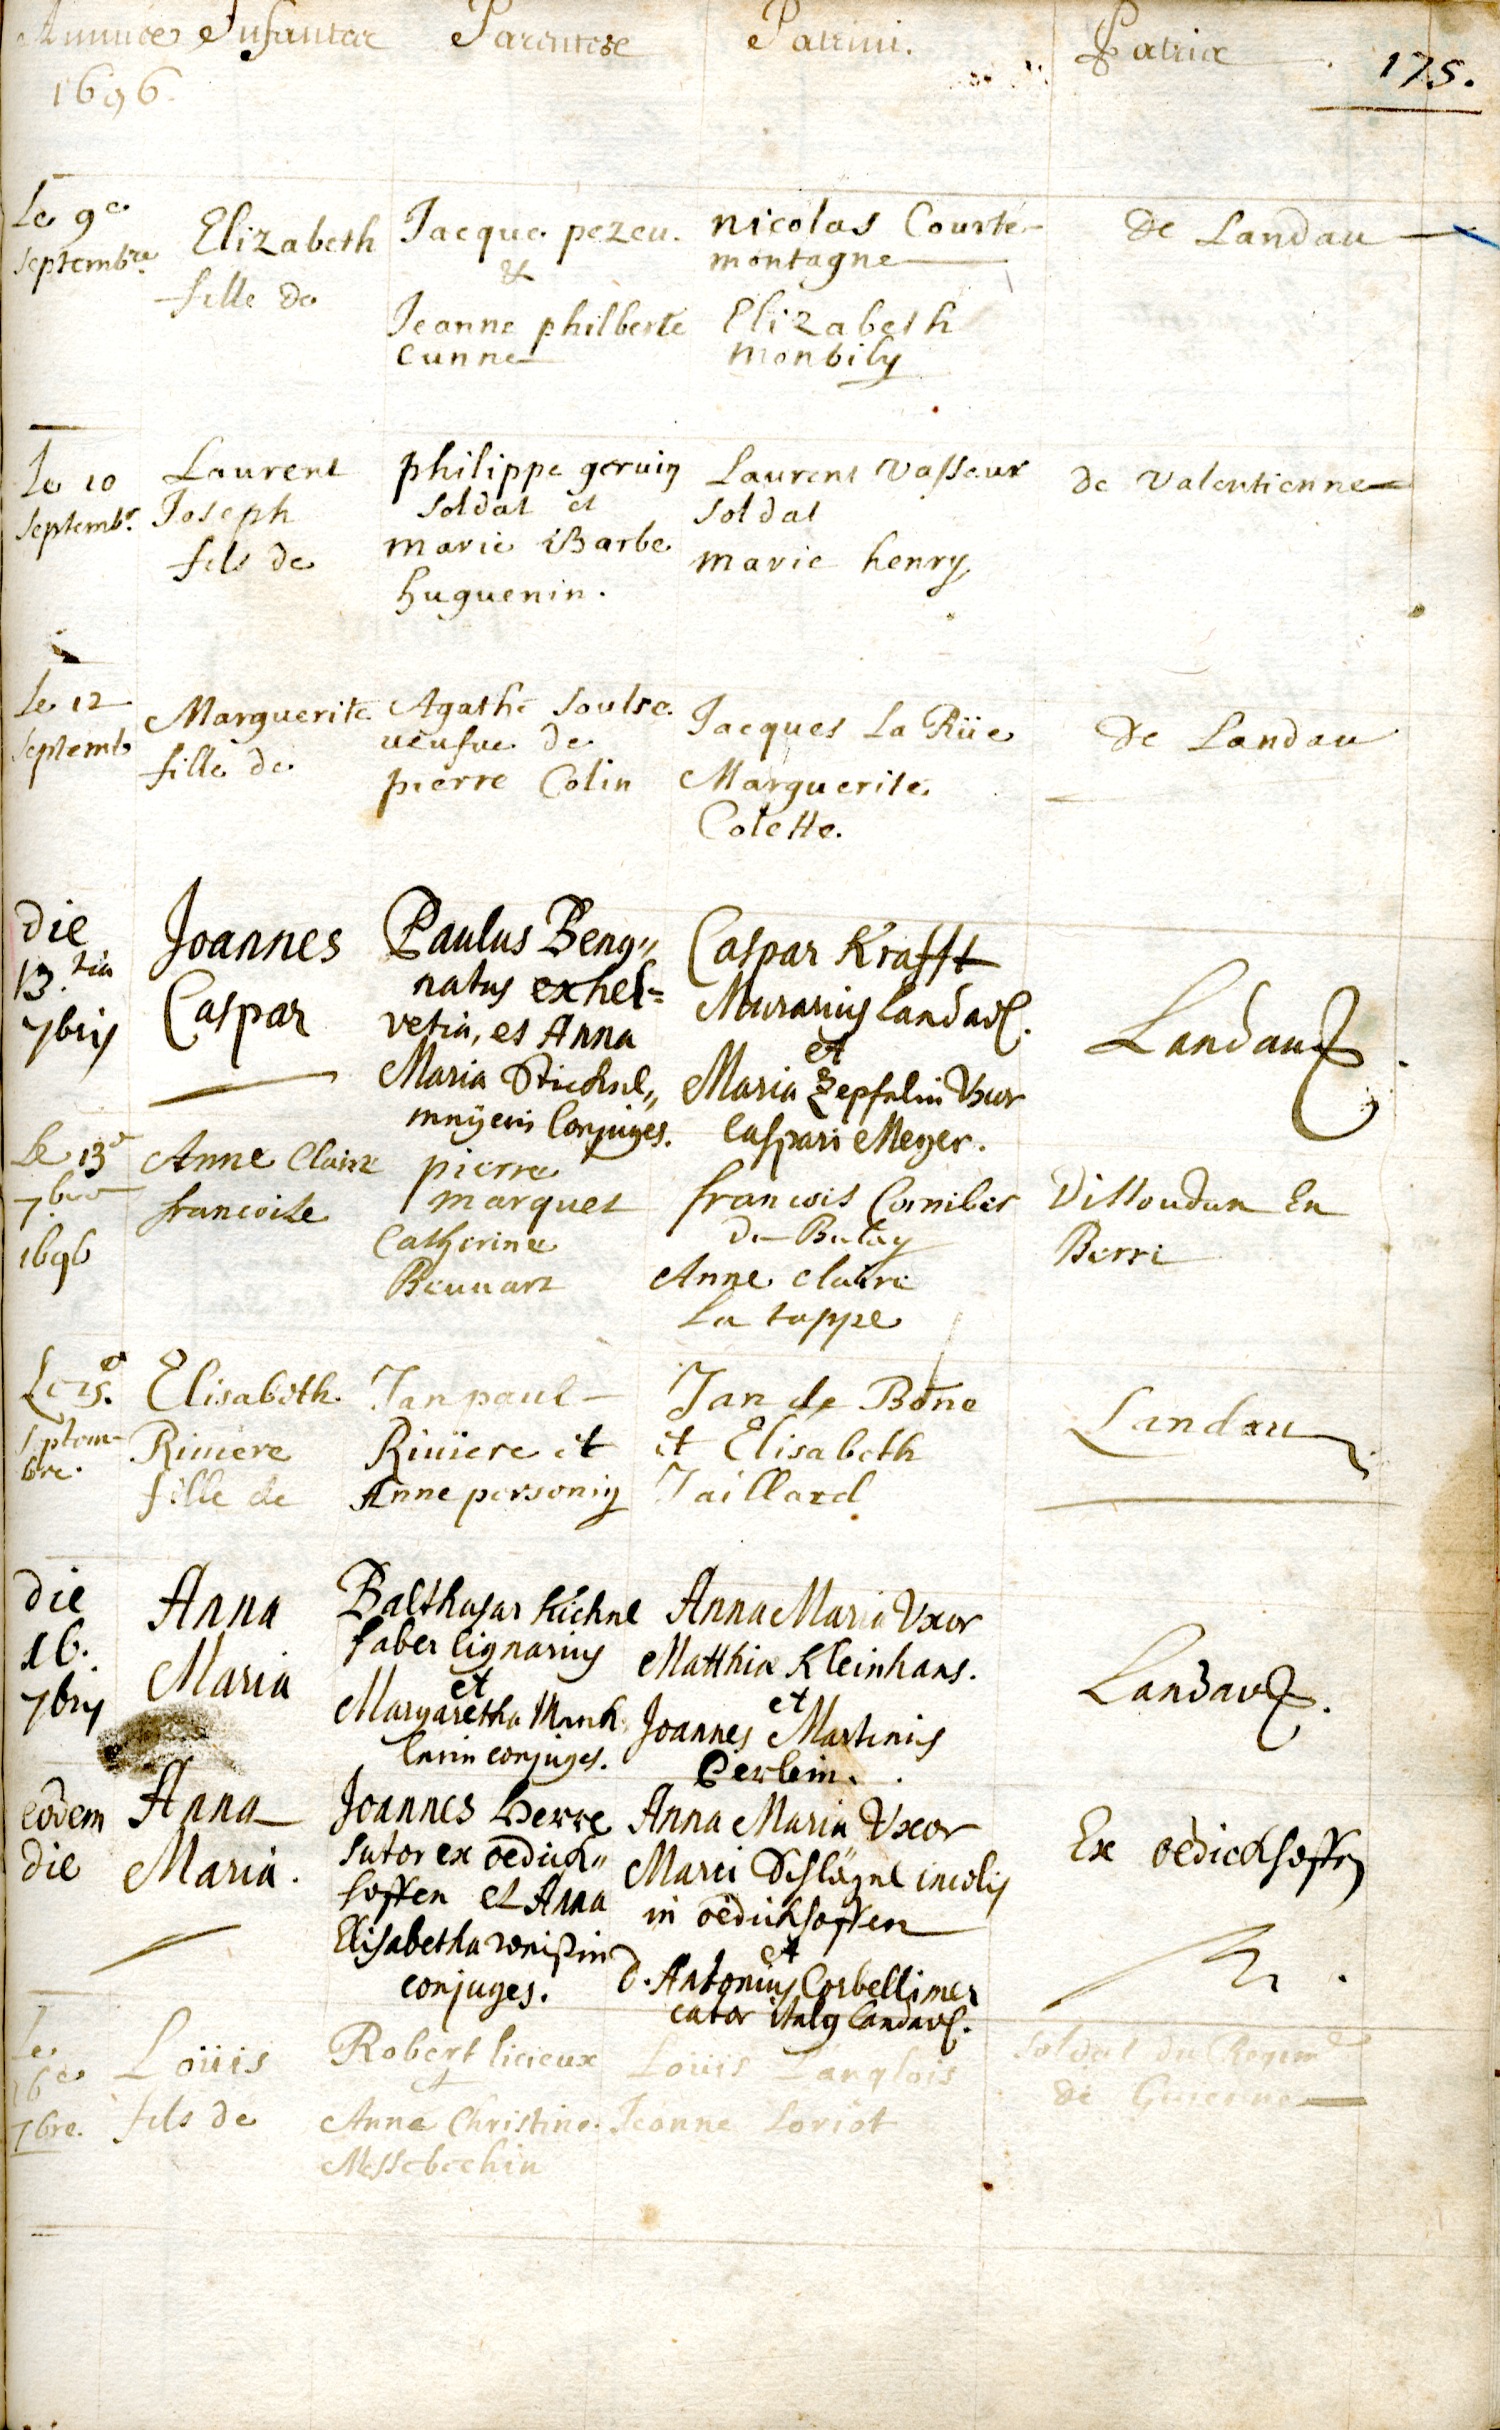 Annus Infantes Parentes Patrini. Patria 175.
1696.
Le 9e
septembre
Elizabeth
fille de
Jacque pezeu.
&
Jeanne philberte
cunne
nicolas Courte-
montagne
Elizabeth
monbily
de Landau
Le 10
septembr.
Laurent
Joseph
fils de
philippe gervin
soldat et
marie Barbe
huguenin.
Laurent Vasseur
soldat
marie henry
de Valentienne
Le 12
septemb
Marguerite
fille de
Agathe Soulse
veufue de
pierre Colin
Jacques La Rüe
Marguerite
Colette.
de Landau
die
13.tia
7bris
Joannes
Caspar
Paulus Beng„
natus ex hel=
vetia, et Anna
Maria
conjuges.
Caspar Krafft
Murarius Landav.
et
Maria Zepfelin Uxor
Caspari Meyer.
Landau
Le 13e
7bre
1696
Anne Claire
francoise
pierre
marquet
Catherine
Beuuart
francois Cornibes
de
Anne claire
La tappe
Dissoudun En
Berri
Le 15.e
septem-
bre.
Elisabeth
Riuiere
fille de
Jan paul
Riuiere et
Anne personig
Jan de Bone
et Elisabeth
Jaillard
Landau
die
16.
7bris
Anna
Maria
Balthasar Kichnel
faber lignarius
et
Margaretha
conjuges.
Anna Maria Uxor
Matthiæ Kleinhans.
et
Joannes Martinus
Oerlein.
Landav.
eodem
die
Anna
Maria.
Joannes Herre
sutor ex oedick„
hoffen et Anna
Elisabetha
conjuges.
Anna Maria Uxor
Marci Schlägel incolis
in oedickhoffen
et
d. Antonius Corbelli mer
cator italg Landav.
Ex oedickhoffen
Le
16e
7bre.
Loüis
fils de
Robert licieux
Anne Christine
Messebechin
Loüis Langlois
Jeanne Loriot
soldat du Regim
de Guienne